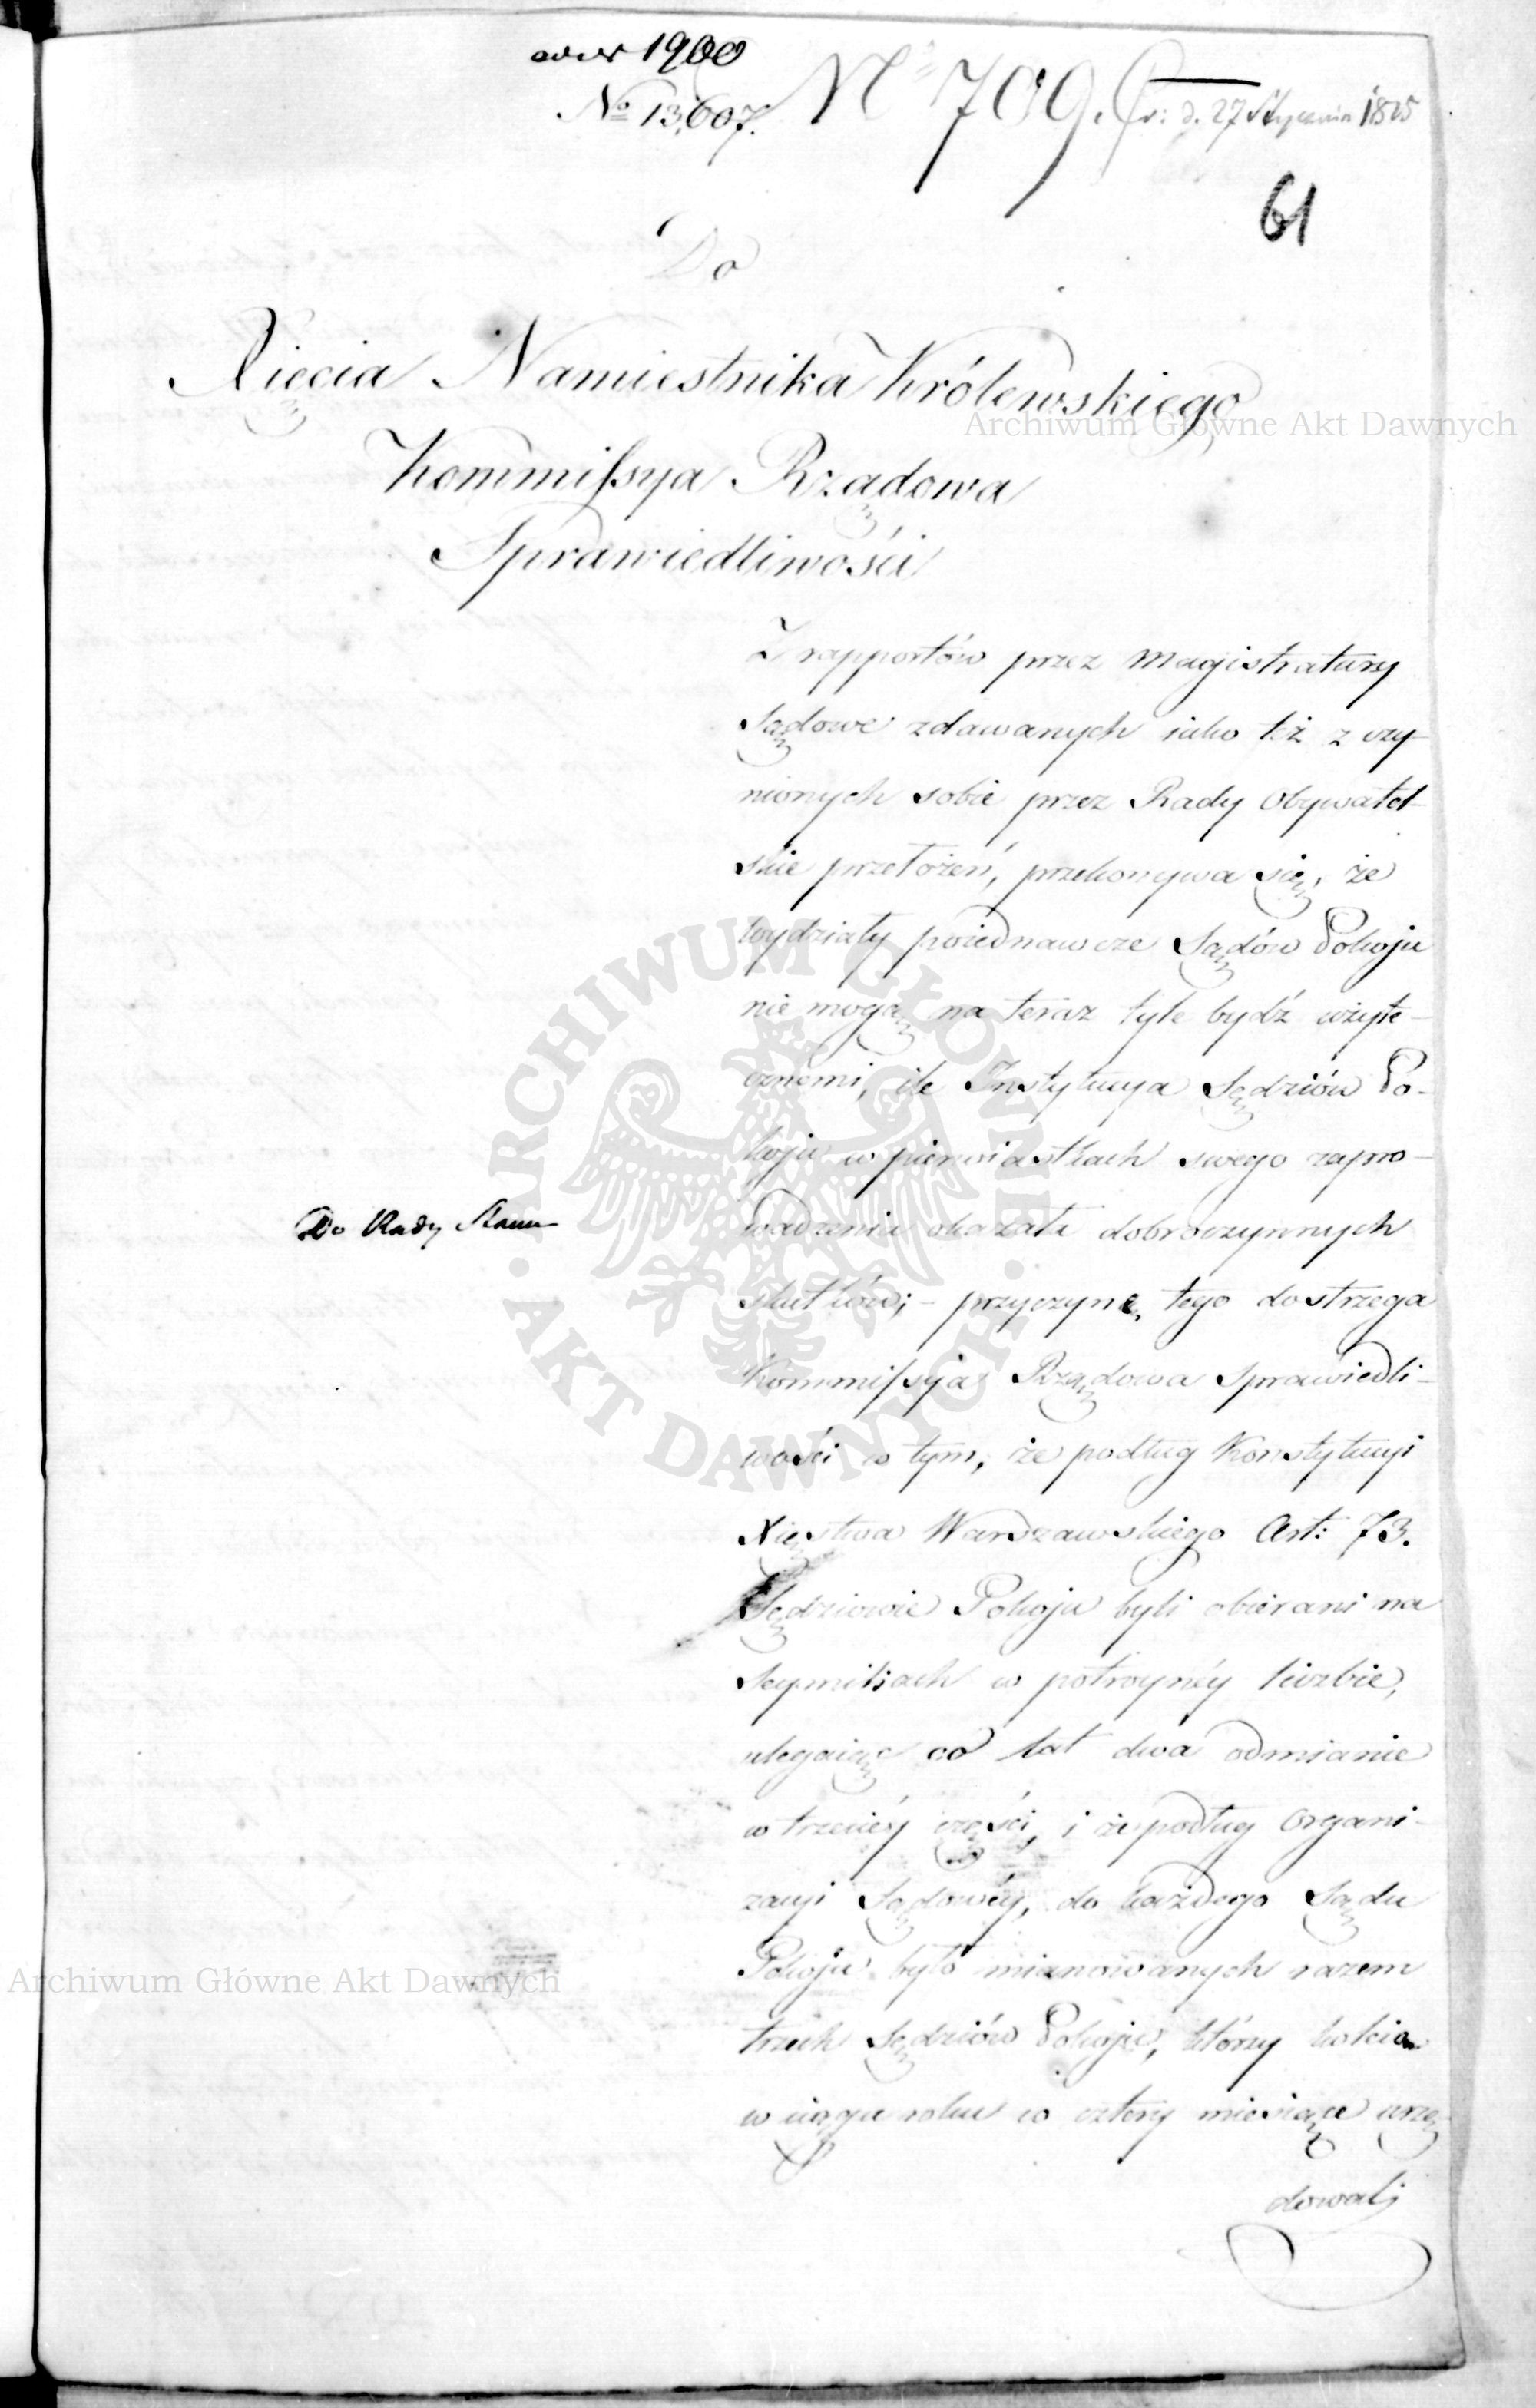 1900
№ 13,607.
N 709. Pr: d. 27 Stycznia 1825
61
Do
Xięcia Namiestnika Królewskiego
Archiwum Główne Akt Dawnych
Kommissya Rządowa
Sprawiedliwości
Z rapportów przez Magistratury
Sądowe zdawanych iako też z czy-
nionych sobie przez Rady Obywatel-
skie przełożeń, przekonywa się, że
wydziały poiednawcze Sądów Pokoju
nie mogą na teraz tyle bydź użyte-
cznemi, ile Instytucya Sędziów Po-
koju w pierwiastkach swego zapro-
Do Rady Stanu
wadzenia okazała dobroczynnych
skutków; – przyczynę tego dostrzega
Kommissya Rządowa Sprawiedli-
wości w tym, że podług Konstytucyi
Xięstwa Warszawskiego Art: 73.
Sędziowie Pokoju byli obierani na
Seymikach w potroyney liczbie,
ulegaiąc co lat dwa odmianie
w trzeciéy części, i że podług Organi-
zacyi Sądowéy, do każdego Sądu
Pokoju było mianowanych razem
Archiwum Główne Akt Dawnych
trzech Sędziów Pokoju, którzy koleią
w ciągu roku co cztery miesiące urzę-
dowali
ARCHIWUM GŁÓWNE
AKT DAWNYCH